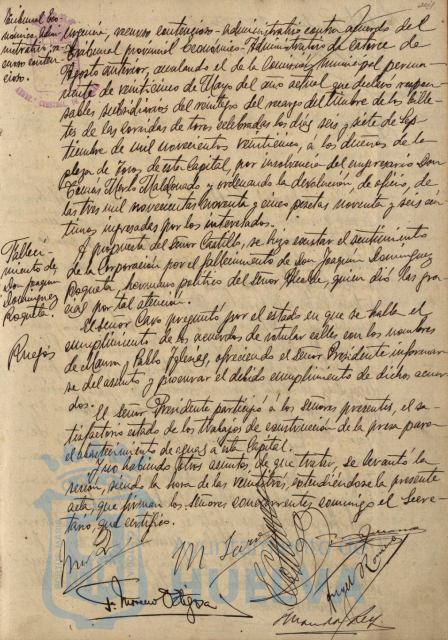 Tribunal Eco-
nómico, admi-
nistrativo, re-
curso conten-
cioso.
urgencia, recurso contencioso-administrativo contra acuerdo del
Tribunal provincial económico-administrativo de catorce de
Agosto anterior, anulando el de la Comisión municipal perma-
nente de veinticinco de Mayo del año actual que declaró respon-
sables subsidiarios del reintegro del recargo del timbre de los bille-
tes de las corridas de toros celebradas los días seis y siete de Sep-
tiembre de mil novecientos veinticinco, a los dueños de la
plaza de Toros de esta Capital, por insolvencia del empresario Don
Tomás Marlo Maldonado y ordenando la devolución, de oficio, de
las tres mil novecientas noventa y cinco pesetas noventa y seis cén-
timos, ingresadas por los interesados.
Falleci-
miento de
Don Joaquín
Domínguez
Roqueta.
A propuesta del Señor Castillo, se hizo constar el sentimiento
de la Corporación por el fallecimiento de Don Joaquín Domínguez
Roqueta, hermano político del Señor Alcalde, quien dió las gra-
cias por tal atención.
Ruegos
El señor Cavo preguntó por el estado en que se halla el
cumplimiento de los acuerdos de rotular calles con los nombres
de Maura, Pablo Iglesias, ofreciendo el señor Presidente informar-
se del asunto y procurar el debido cumplimiento de dichos acuer-
dos.
El señor Presidente participó á los señores presentes, el sa-
tisfactorio estado de los trabajos de construcción de la presa para
el abastecimiento de aguas a esta Capital.
Y no habiendo otros asuntos, de que tratar, se levantó la
sesión, siendo la hora de las veintitrés, extendiéndose la presente
acta, que firman los señores concurrentes conmigo el Secre-
tario, que certifico.
HUELVA